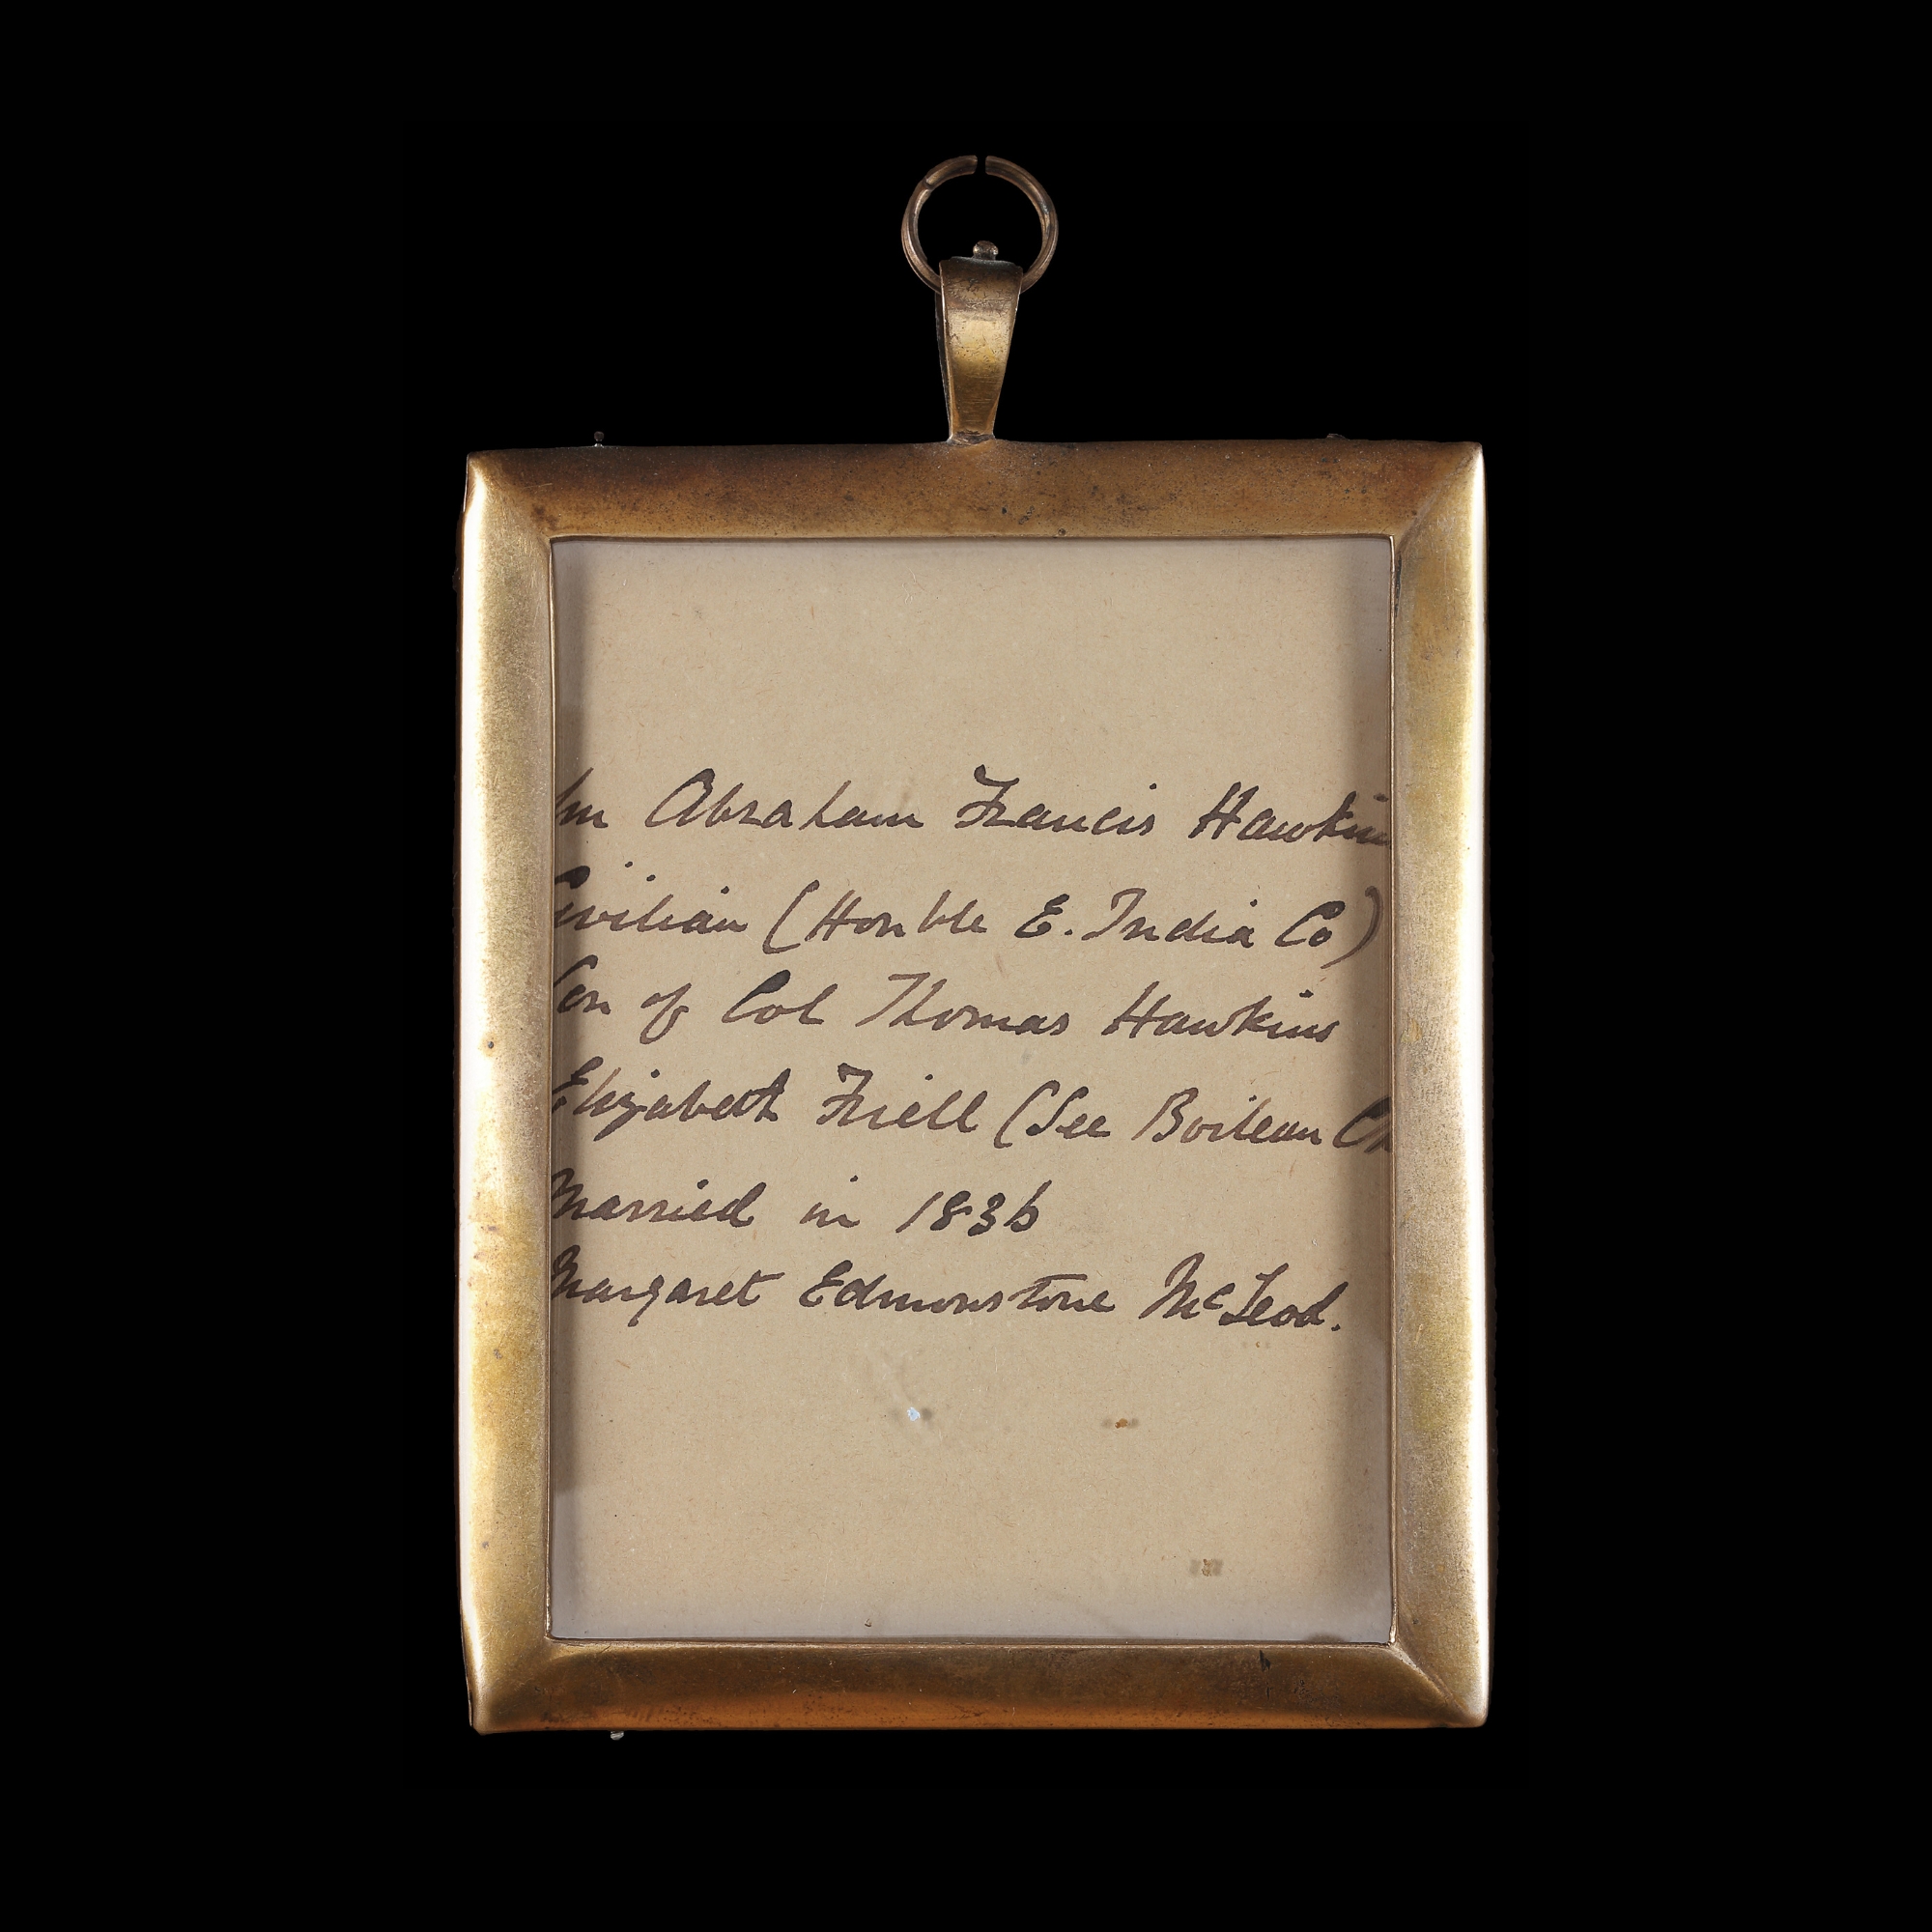 Abraham Francis Hawkins
Civilian (Honble E. India Co)
Son of Col Thomas Hawkins
Elizabeth Friell (See Boileau
Married in 1836
Margaret Edmonstone McLeod.